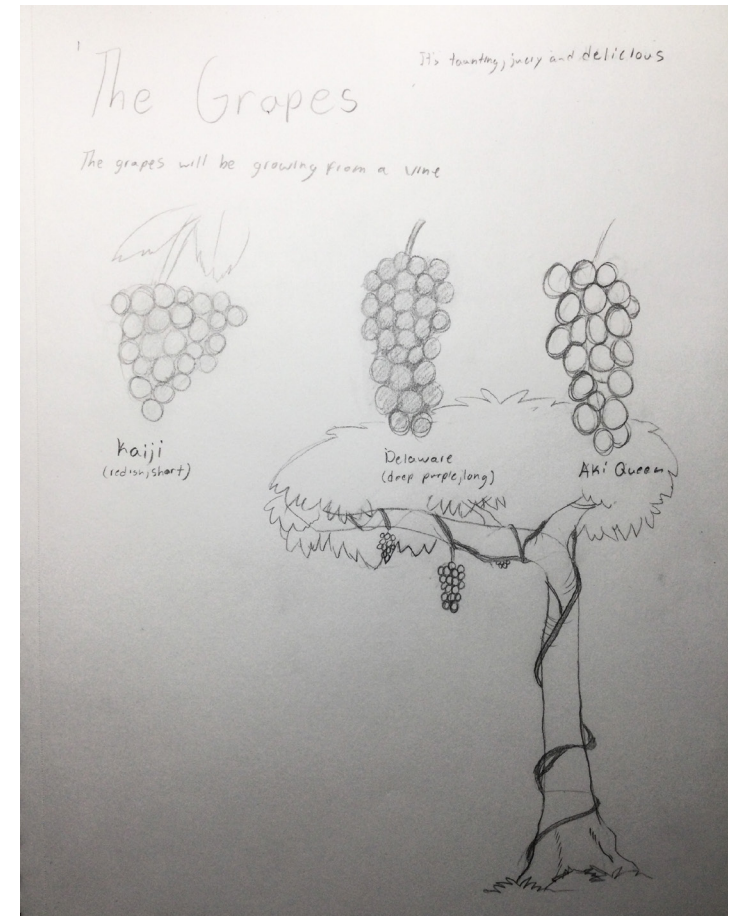 The Grapes
It's taunting, juicy and delicious
The grapes will be growing from a vine
Kaiji
(redish, short)
Delaware
(deep purple, long)
Aki Queen